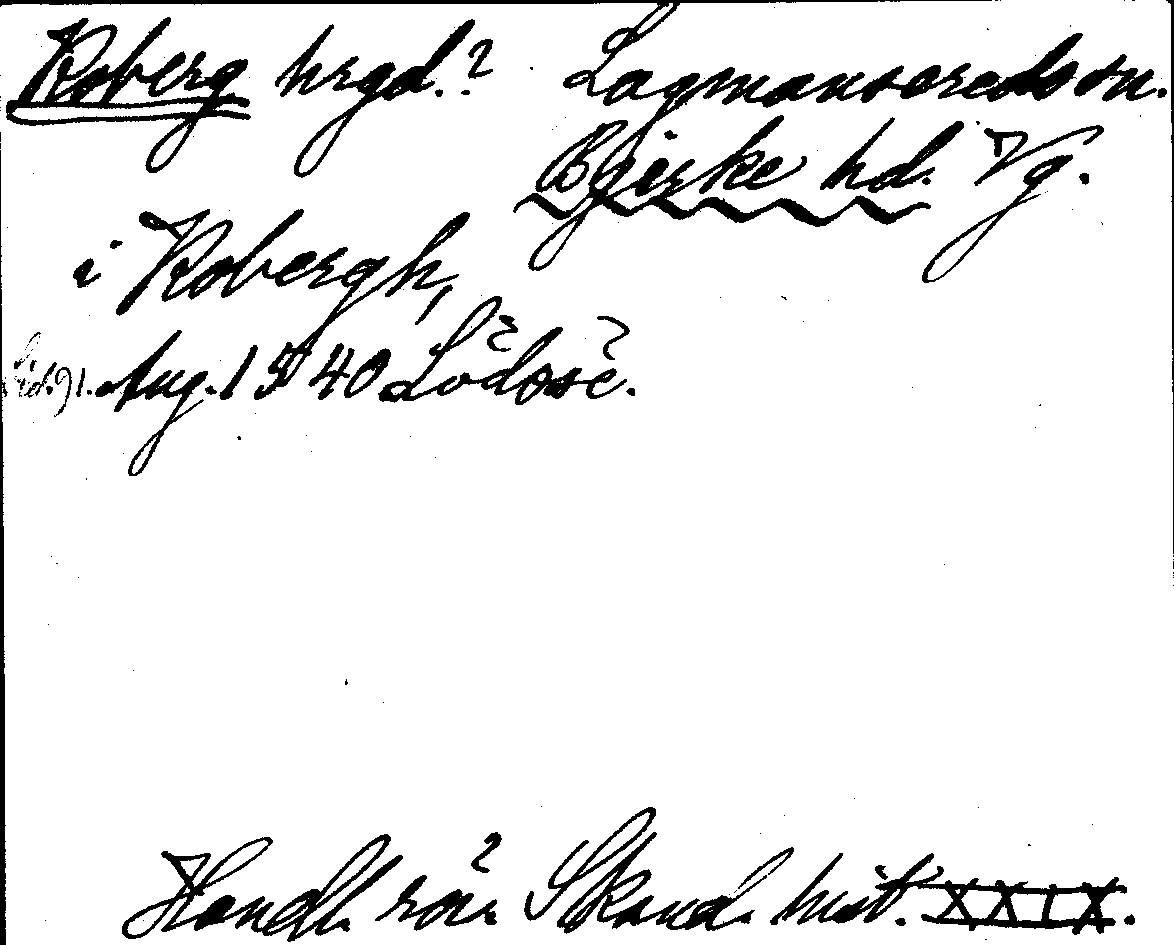 Koberg hrgd.? Lagmansereds sn.
Bjerke hd. Vg.
i Kobergh,
Sid. 91. Aug. 1540 Lödöse.
Handl. rör. Skand. hist. XXIX.